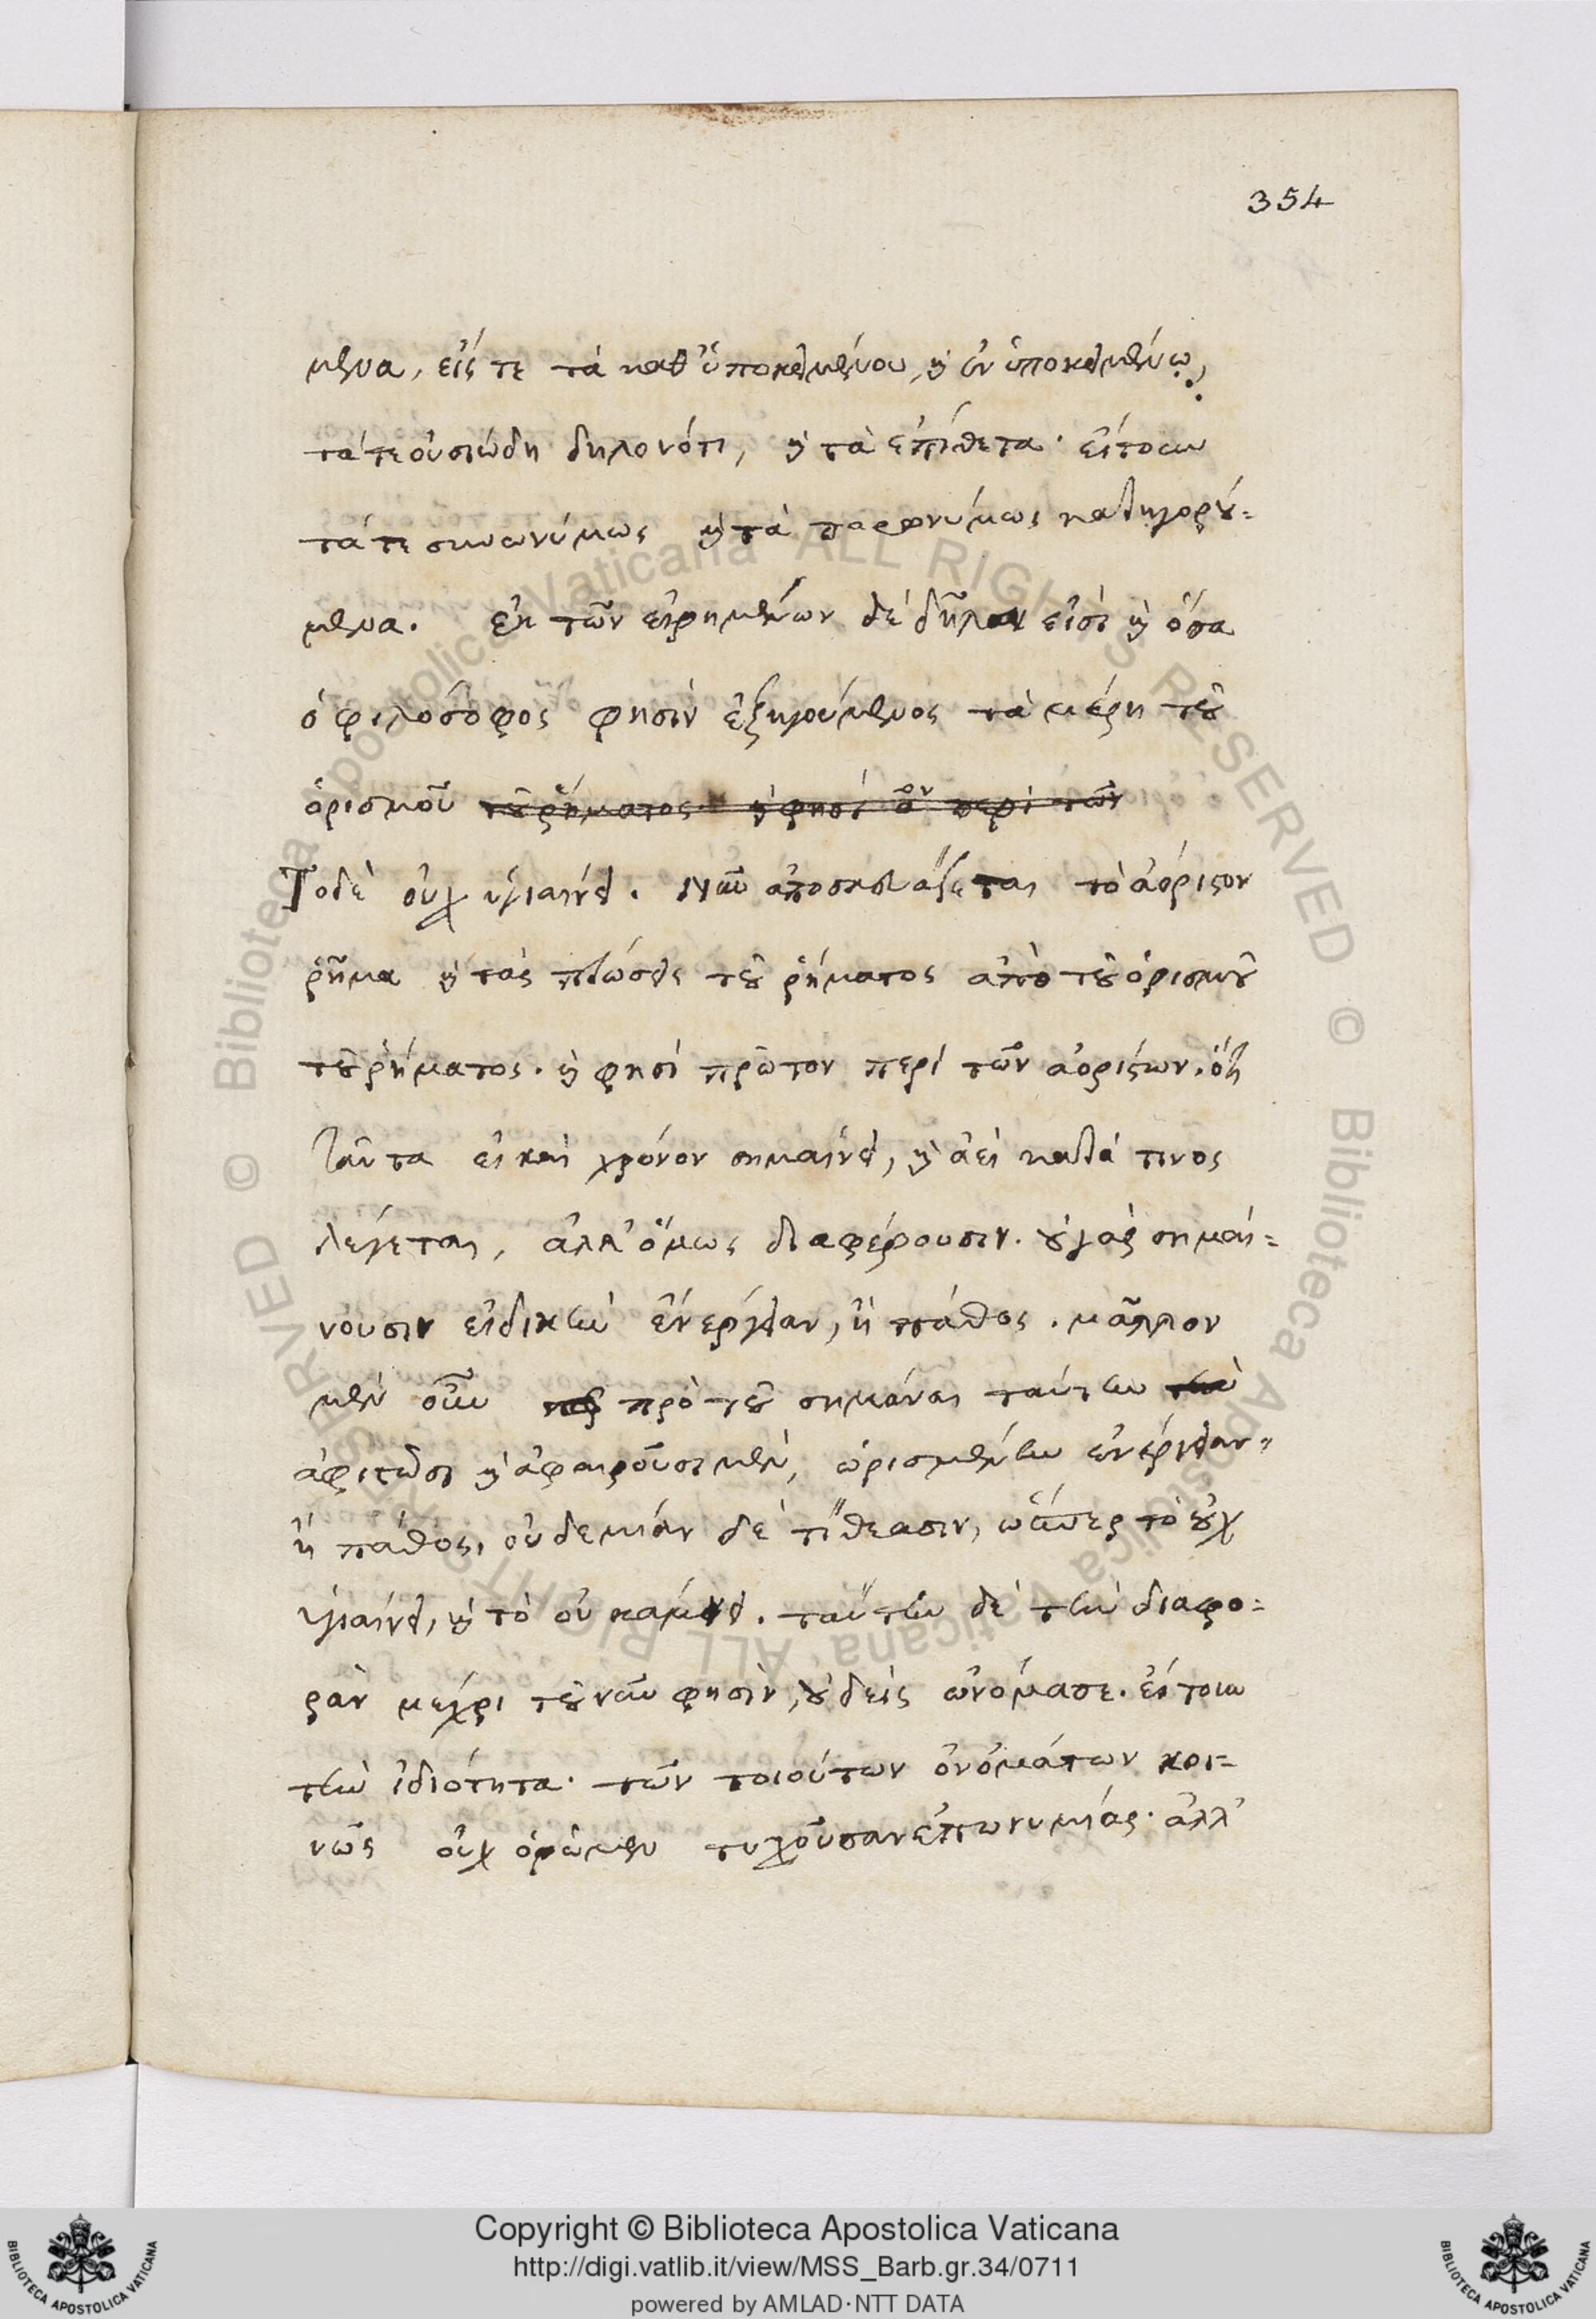 354
μενα, εἴς τε τὰ καθ' ὑποκειμένου, καὶ ἐν ὑποκειμένῳ,
τά τε οὐσιώδη δηλονότι, καὶ τὰ ἐπίθετα· εἴτουν
τά τε συνωνύμως καὶ τὰ παρωνύμως κατηγορού-
μενα. ἐκ τῶν εἰρημένων δὲ δῆλον εἰσὶ καὶ ὅσα
ὁ φιλόσοφος φησὶν ἐξηγούμενος τὰ μέρη τοῦ
ὁρισμοῦ τοῦ ῥήματος· καὶ φησὶ περὶ τῶν
Τοδὲ οὐχ ὑγιαίνει. Νῦν ἀποσκευάζεται τὸ ἀόριστον
ῥῆμα καὶ τὰς πτώσεις τοῦ ῥήματος ἀπὸ τοῦ ὁρισμοῦ
τοῦ ῥήματος. καὶ φησὶ πρῶτον περὶ τῶν ἀορίστων. ὅτι
ταῦτα εἰ καὶ χρόνον σημαίνει, καὶ ἀεὶ κατά τινος
λέγεται, ἀλλ' ὅμως διαφέρουσιν. οὐ γὰρ σημαί-
νουσιν εἰδικὴν ἐνέργειαν, ἢ πάθος. μᾶλλον
μὲν οὖν πρὸ τοῦ σημάναι ταύτην τὴν
ἀφιστῶσι καὶ ἀφαιροῦσι μὲν, ὡρισμένην ἐνέργειαν,
ἢ πάθος, οὐδεμίαν δὲ τίθεασιν, ὥσπερ τὸ οὐχ
ὑγιαίνει, καὶ τὸ οὐ κάμνει. ταύτην δὲ τὴν διαφο-
ρὰν μέχρι τοῦ νῦν φησὶν, οὐδεὶς ὠνόμασε. εἴτουν
τὴν ἰδιότητα· τῶν τοιούτων ὀνομάτων κοι-
νῶς οὐχ ὁρῶμεν τυχοῦσαν ἐπωνυμίας· ἀλλ'
Copyright © Biblioteca Apostolica Vaticana
http://digi.vatlib.it/view/MSS_Barb.gr.34/0711
powered by AMLAD·NTT DATA